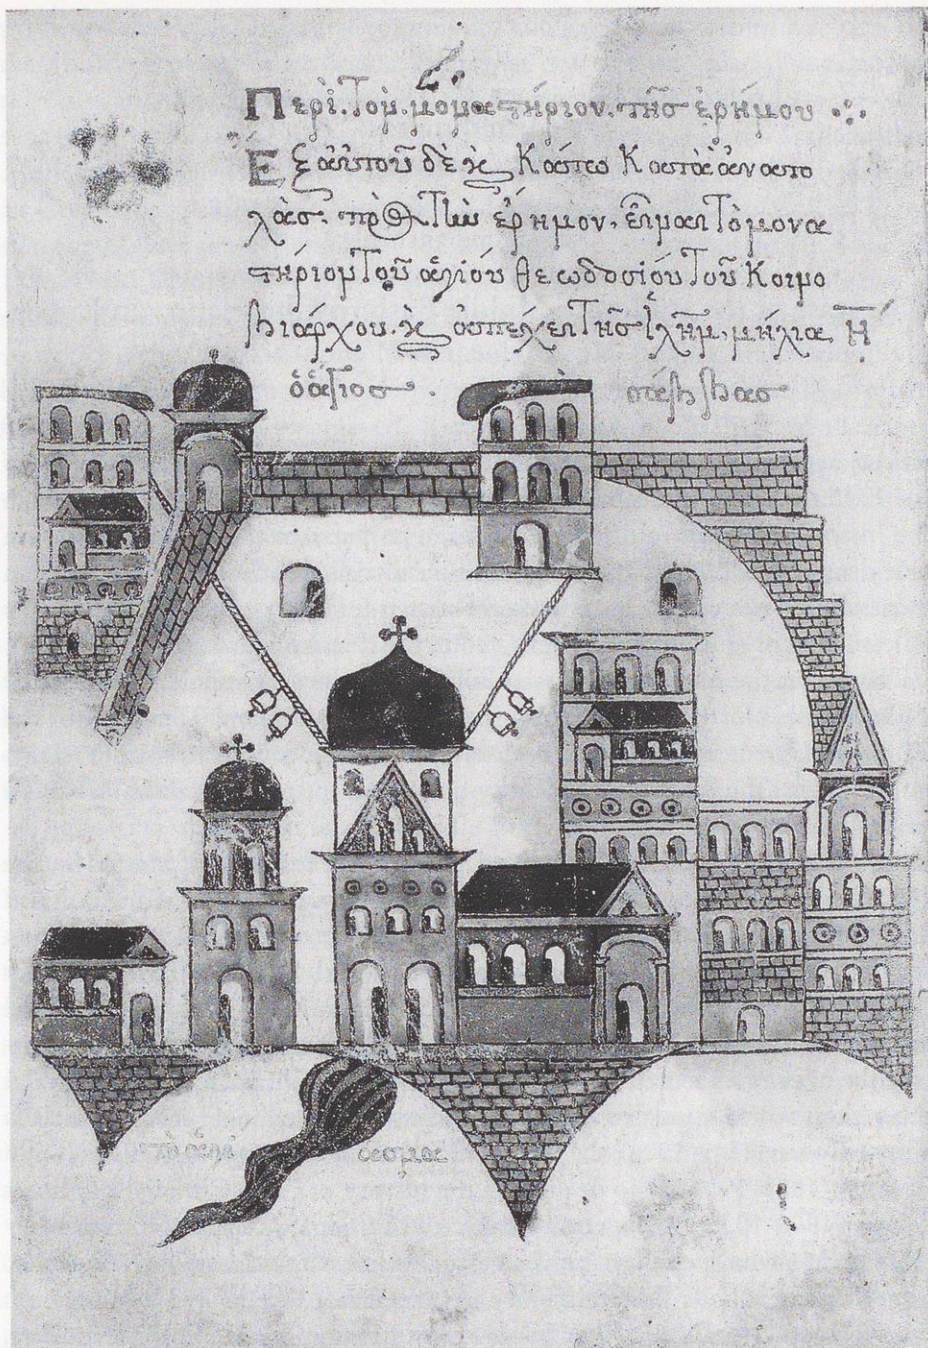 Περὶ. τὸν. μονατήριον. τῆς ἐρήμου ⁘
Ἐξ αὐτοῦ δὲ ϗ κάτω κατὰ ἀνατο
λὰς. πρὸς τὴν ἔρημον. εἶναι τὸ μονα
τήριον τοῦ ἁγίου θεωδοσίου τοῦ κοινο
βιάρχου. ϗ ἀπέχει τῆς ἱλῆμ. μήλια Η
ὁ ἅγιος σάββας
τὸ ἁγί ασμα